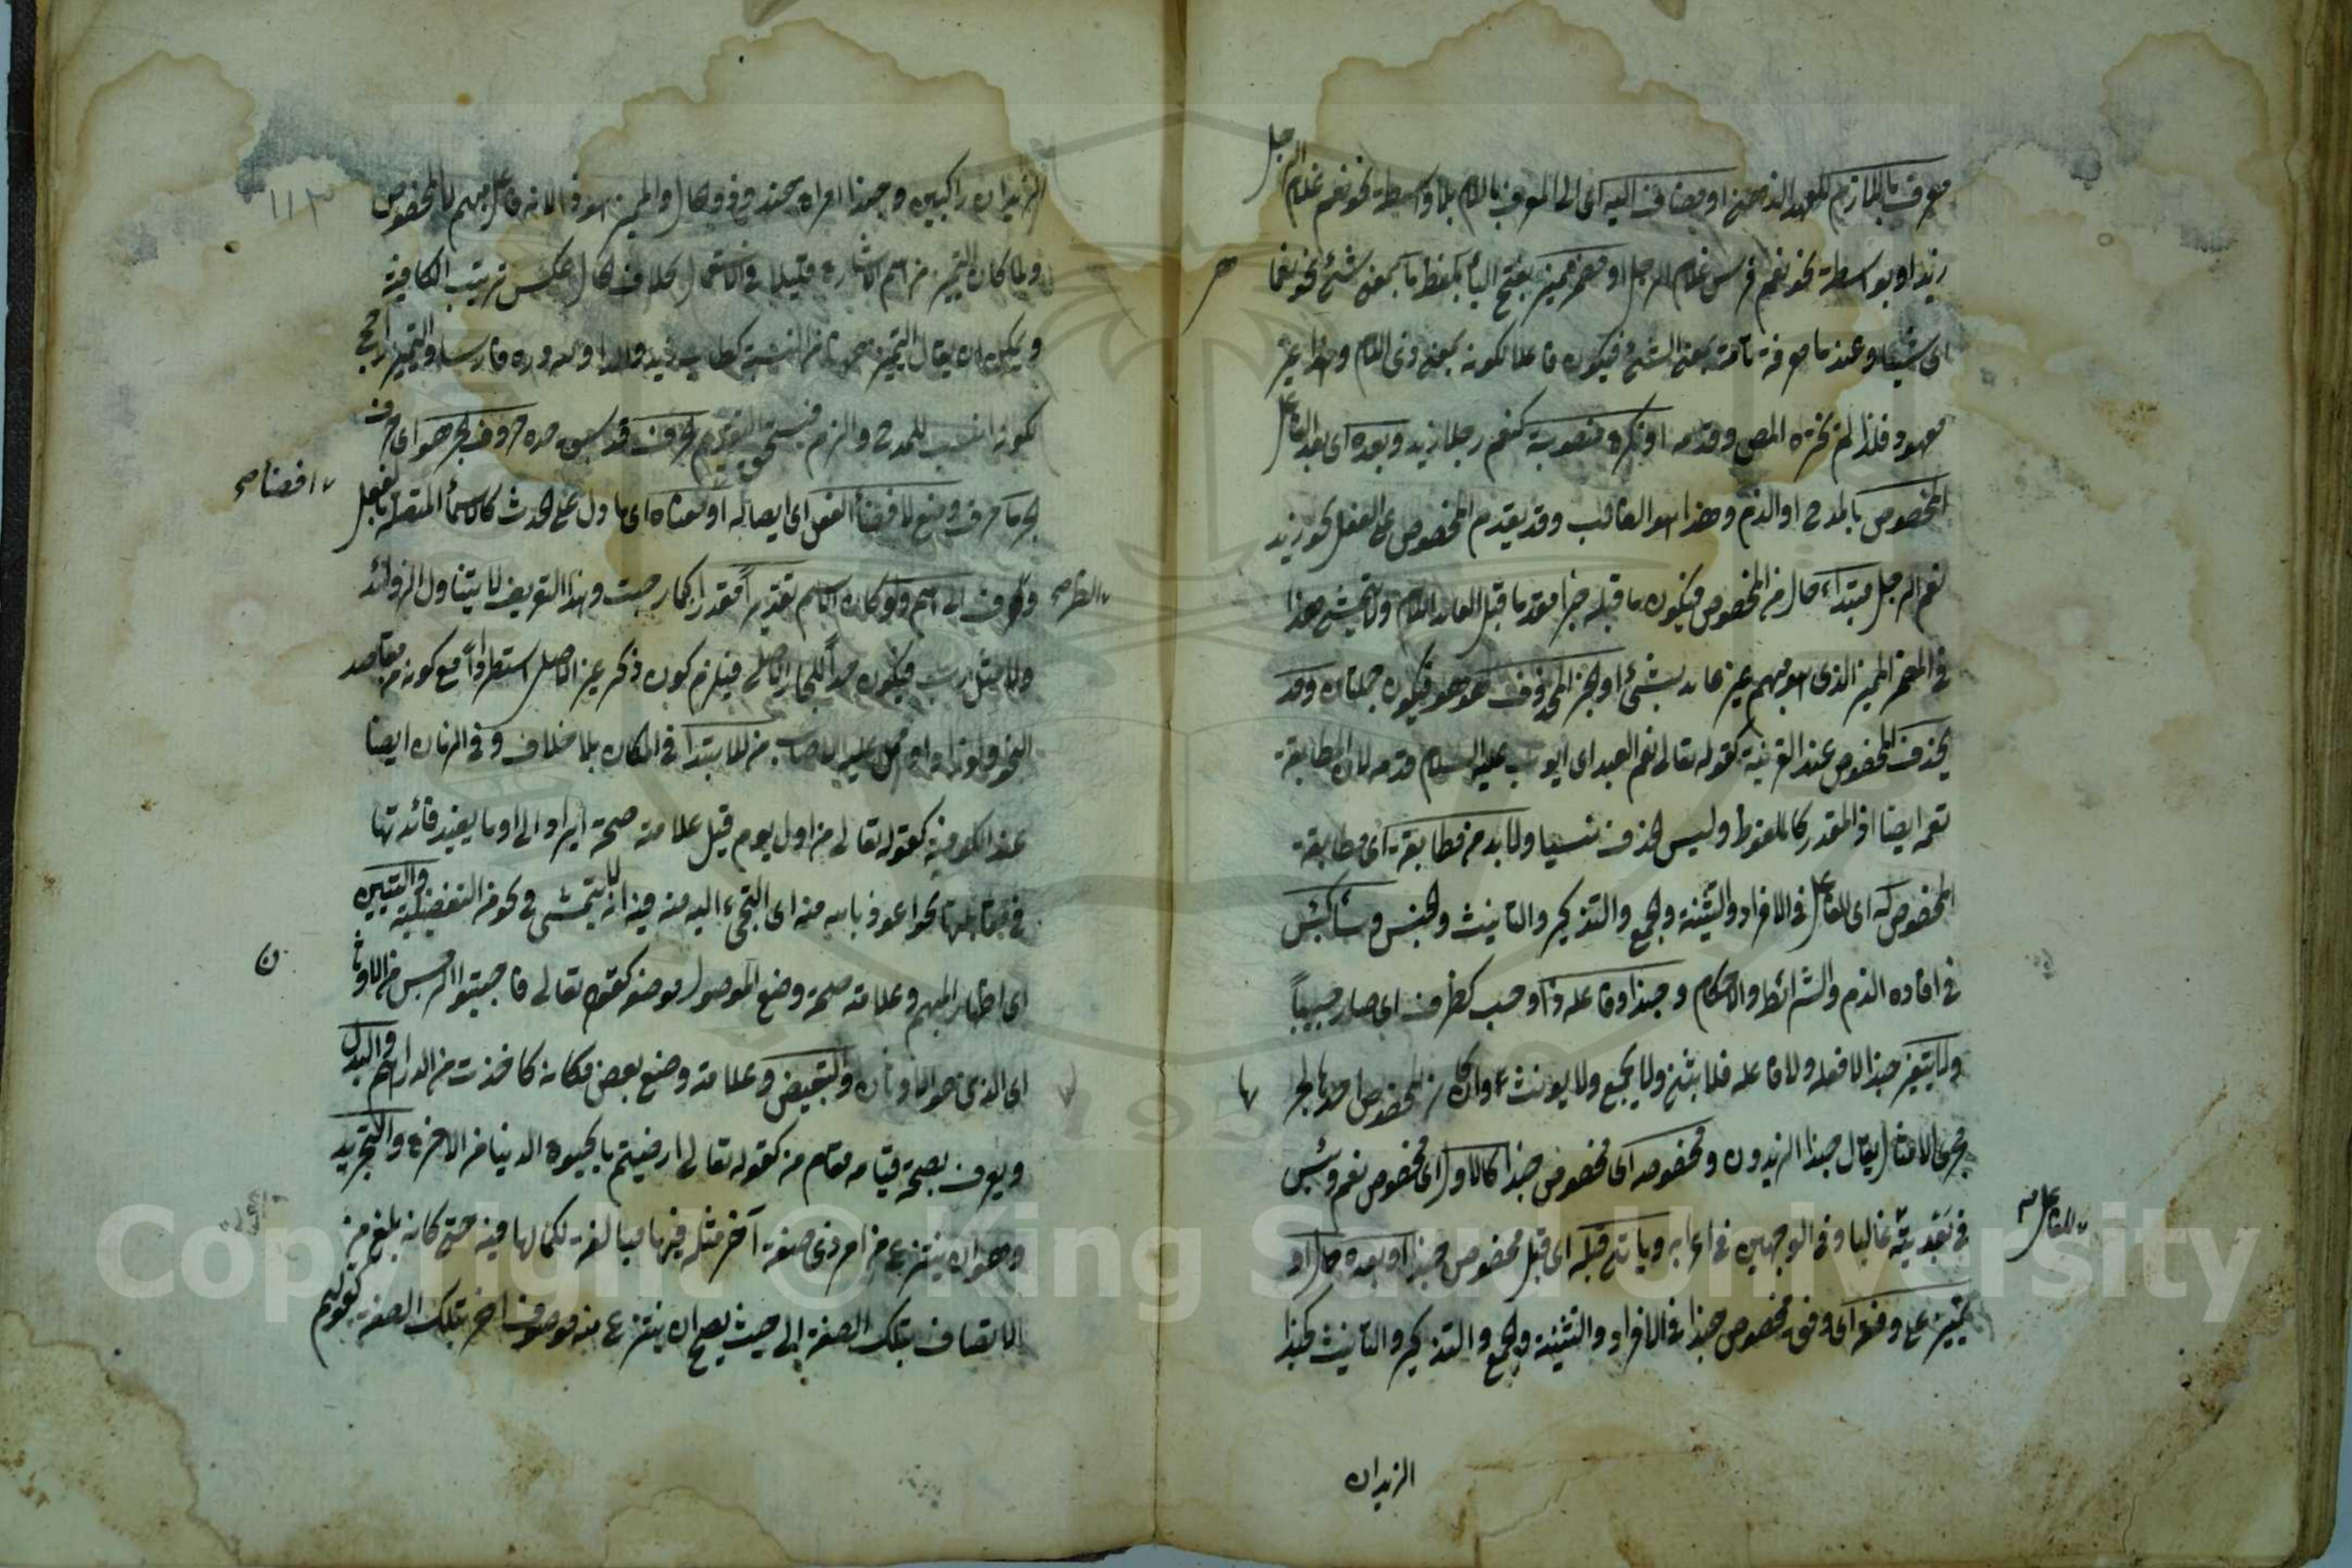 معرف باللام للعهد الذهني او مضاف اليه اى الى المعرف باللام بلا واسطة نحو نعم غلام الرجل
زيد او بواسطة نحو نعم فرس غلام الرجل او مضمر مميز بفتح الياء بلفظ ما بمعنى شئ نحو نعما
اى شيئا وعند ما معرفة تامة بمعنى الشئ فيكون فاعلا لكونه بمعنى ذى اللام وهذا غير
معهود فلذا لم يختره المص وقدمه او نكرة منصوبة كنعم رجلا زيد وبعده اى بعد الفاعل
المخصوص بالمدح او الذم وهذا هو الغالب وقد يقدم المخصوص على الفعل نحو زيد
نعم الرجل مبتداء حال من المخصوص فيكون ما قبله خبرا مقدما قبل العائد اللام ولا يتمشى هذا
فى المضمر المميز الذى هو مبهم غير عائد بشئ او خبر المحذوف هو هو فيكون جملتان وقد
يحذف المخصوص عند القرينة كقوله تعالى نعم العبد اى ايوب عليه السلام قدمه لان المطابقة
تعمه ايضا اذ المقدر كالملفوظ وليس الحذف نسيا ولا بد من مطابقة اى مطابقة
المخصوص له اى للفاعل فى الافراد والتثنية والجمع والتذكير والتانيث والجنس وساء كبئس
فى افادة الذم والشرائط والاحكام وحبذا وفاعله ذا وحب كظرف اى صار حبيبا
ولا يتغير حبذا لا فعله ولا فاعله فلا يثنى ولا يجمع ولا يونث وان كان المخصوص احدها لجر
مجرى الامثال يقال حبذا الزيدون ومخصوصه اى مخصوص حبذا كالاول اى مخصوص نعم وبئس
فى بعديته غالبا وفى الوجهين فى اعرابه وياتى قبله اى قبل مخصوص حبذا او بعده حال او
تمييز على وفقه اى وفق مخصوص حبذا فى الافراد والتثنية والجمع والتذكير والتانيث حبذا
للفاعل صح
الزيدان
١١٣
الزيدان راكبين وحبذا امراة هند وذو الحال والمميز هو ذا لانه فاعل مبهم لا المخصوص
ولما كان التمييز من اسم الاشارة قليلا فى الاستعمال بخلاف الحال عكس ترتيب الكافية
ويمكن ان يقال التمييز ههنا من النسبة كطاب زيد والدا ولله دره فارسا والتمييز ارجح
لكونه انسب للمدح والزم فيستحق التقديم الحرف قد سبق حده حروف الجر هو اى حرف
الجر ما حرف وضع لافضاء الفعل اى ايصاله او معناه اى ما دل على الحدث كالاسماء المتصلة بالفعل
افضاء صح
والظرف الى اسم ولو كان الاسم تقديرا مقدرا كما رحبت وهذا التعريف لا يتناول الزوائد
والظرف صح
ولا مثل رب فيكون حدا للجار الاصلى فيلزم كون ذكر غير الاصل استطرادا مع كونه من مقاصد
من للابتداء فى المكان بلا خلاف وفى الزمان ايضا
عند الكوفية كقوله تعالى من اول يوم قيل علامته صحة ايراد الى او ما يفيد فائدتها
فى مقابلتها نحو اعوذ بالله منه اى التجئ اليه منه فيه انه لا يتمشى فى نحو من التفضيلية والتبيين
ن
اى اظهار المبهم وعلامته صحة وضع الموصول موضعه كقوله تعالى فاجتنبوا الرجس من الاوثان
اى الذى هو الاوثان والتبعيض وعلامته وضع بعض مكانه كاخذت من الدراهم والبدل
ويعرف بصحة قيامه مقام من كقوله تعالى ارضيتم بالحيوة الدنيا من الاخرة والتجريد
وهو ان ينتزع من امر ذى صفة آخر مثله فيها مبالغة لكمالها فيه حتى كانه بلغ من
الاتصاف بتلك الصفة الى حيث يصح ان ينتزع منه موصوف اخر بتلك الصفة كقولهم
Copyright © King Saud University